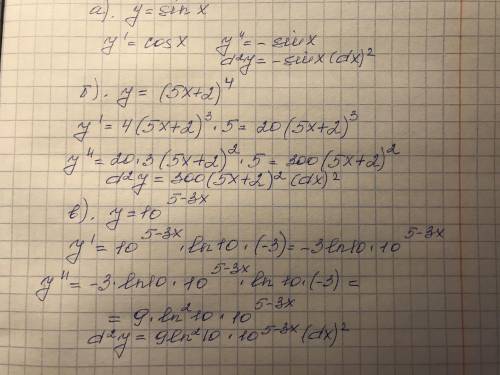 а). y = sin x
y' = cos x y'' = - sin x
d2y = - sin x (dx)²
б). y = (5x+2)⁴
y' = 4(5x+2)³ · 5 = 20(5x+2)³
y'' = 20·3(5x+2)² · 5 = 300(5x+2)²
d2y = 300(5x+2)² (dx)²
в). y = 10^5-3x
y' = 10^5-3x · ln10 · (-3) = -3ln10 · 10^5-3x
y'' = -3·ln10 · 10^5-3x · ln10 · (-3) =
= 9·ln²10 · 10^5-3x
d2y = 9ln²10 · 10^5-3x (dx)²